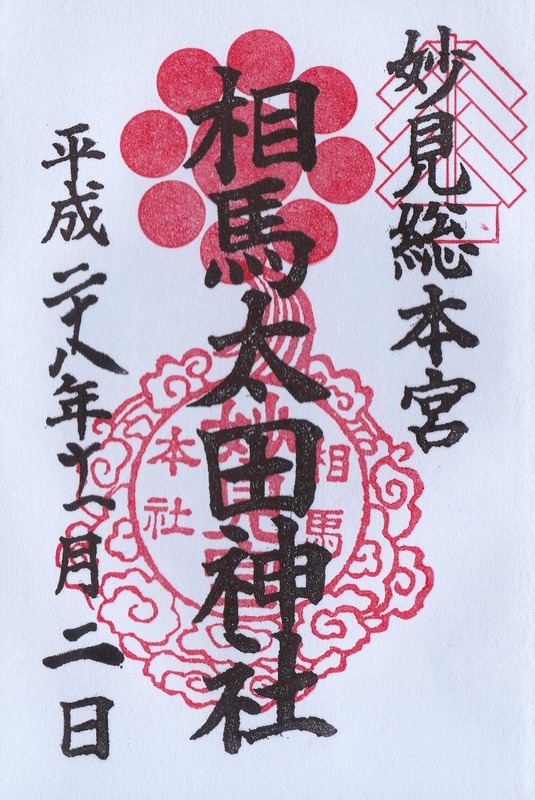 妙見総本宮
相馬太田神社
平成二十八年十一月二日
相馬
妙見宮
本社